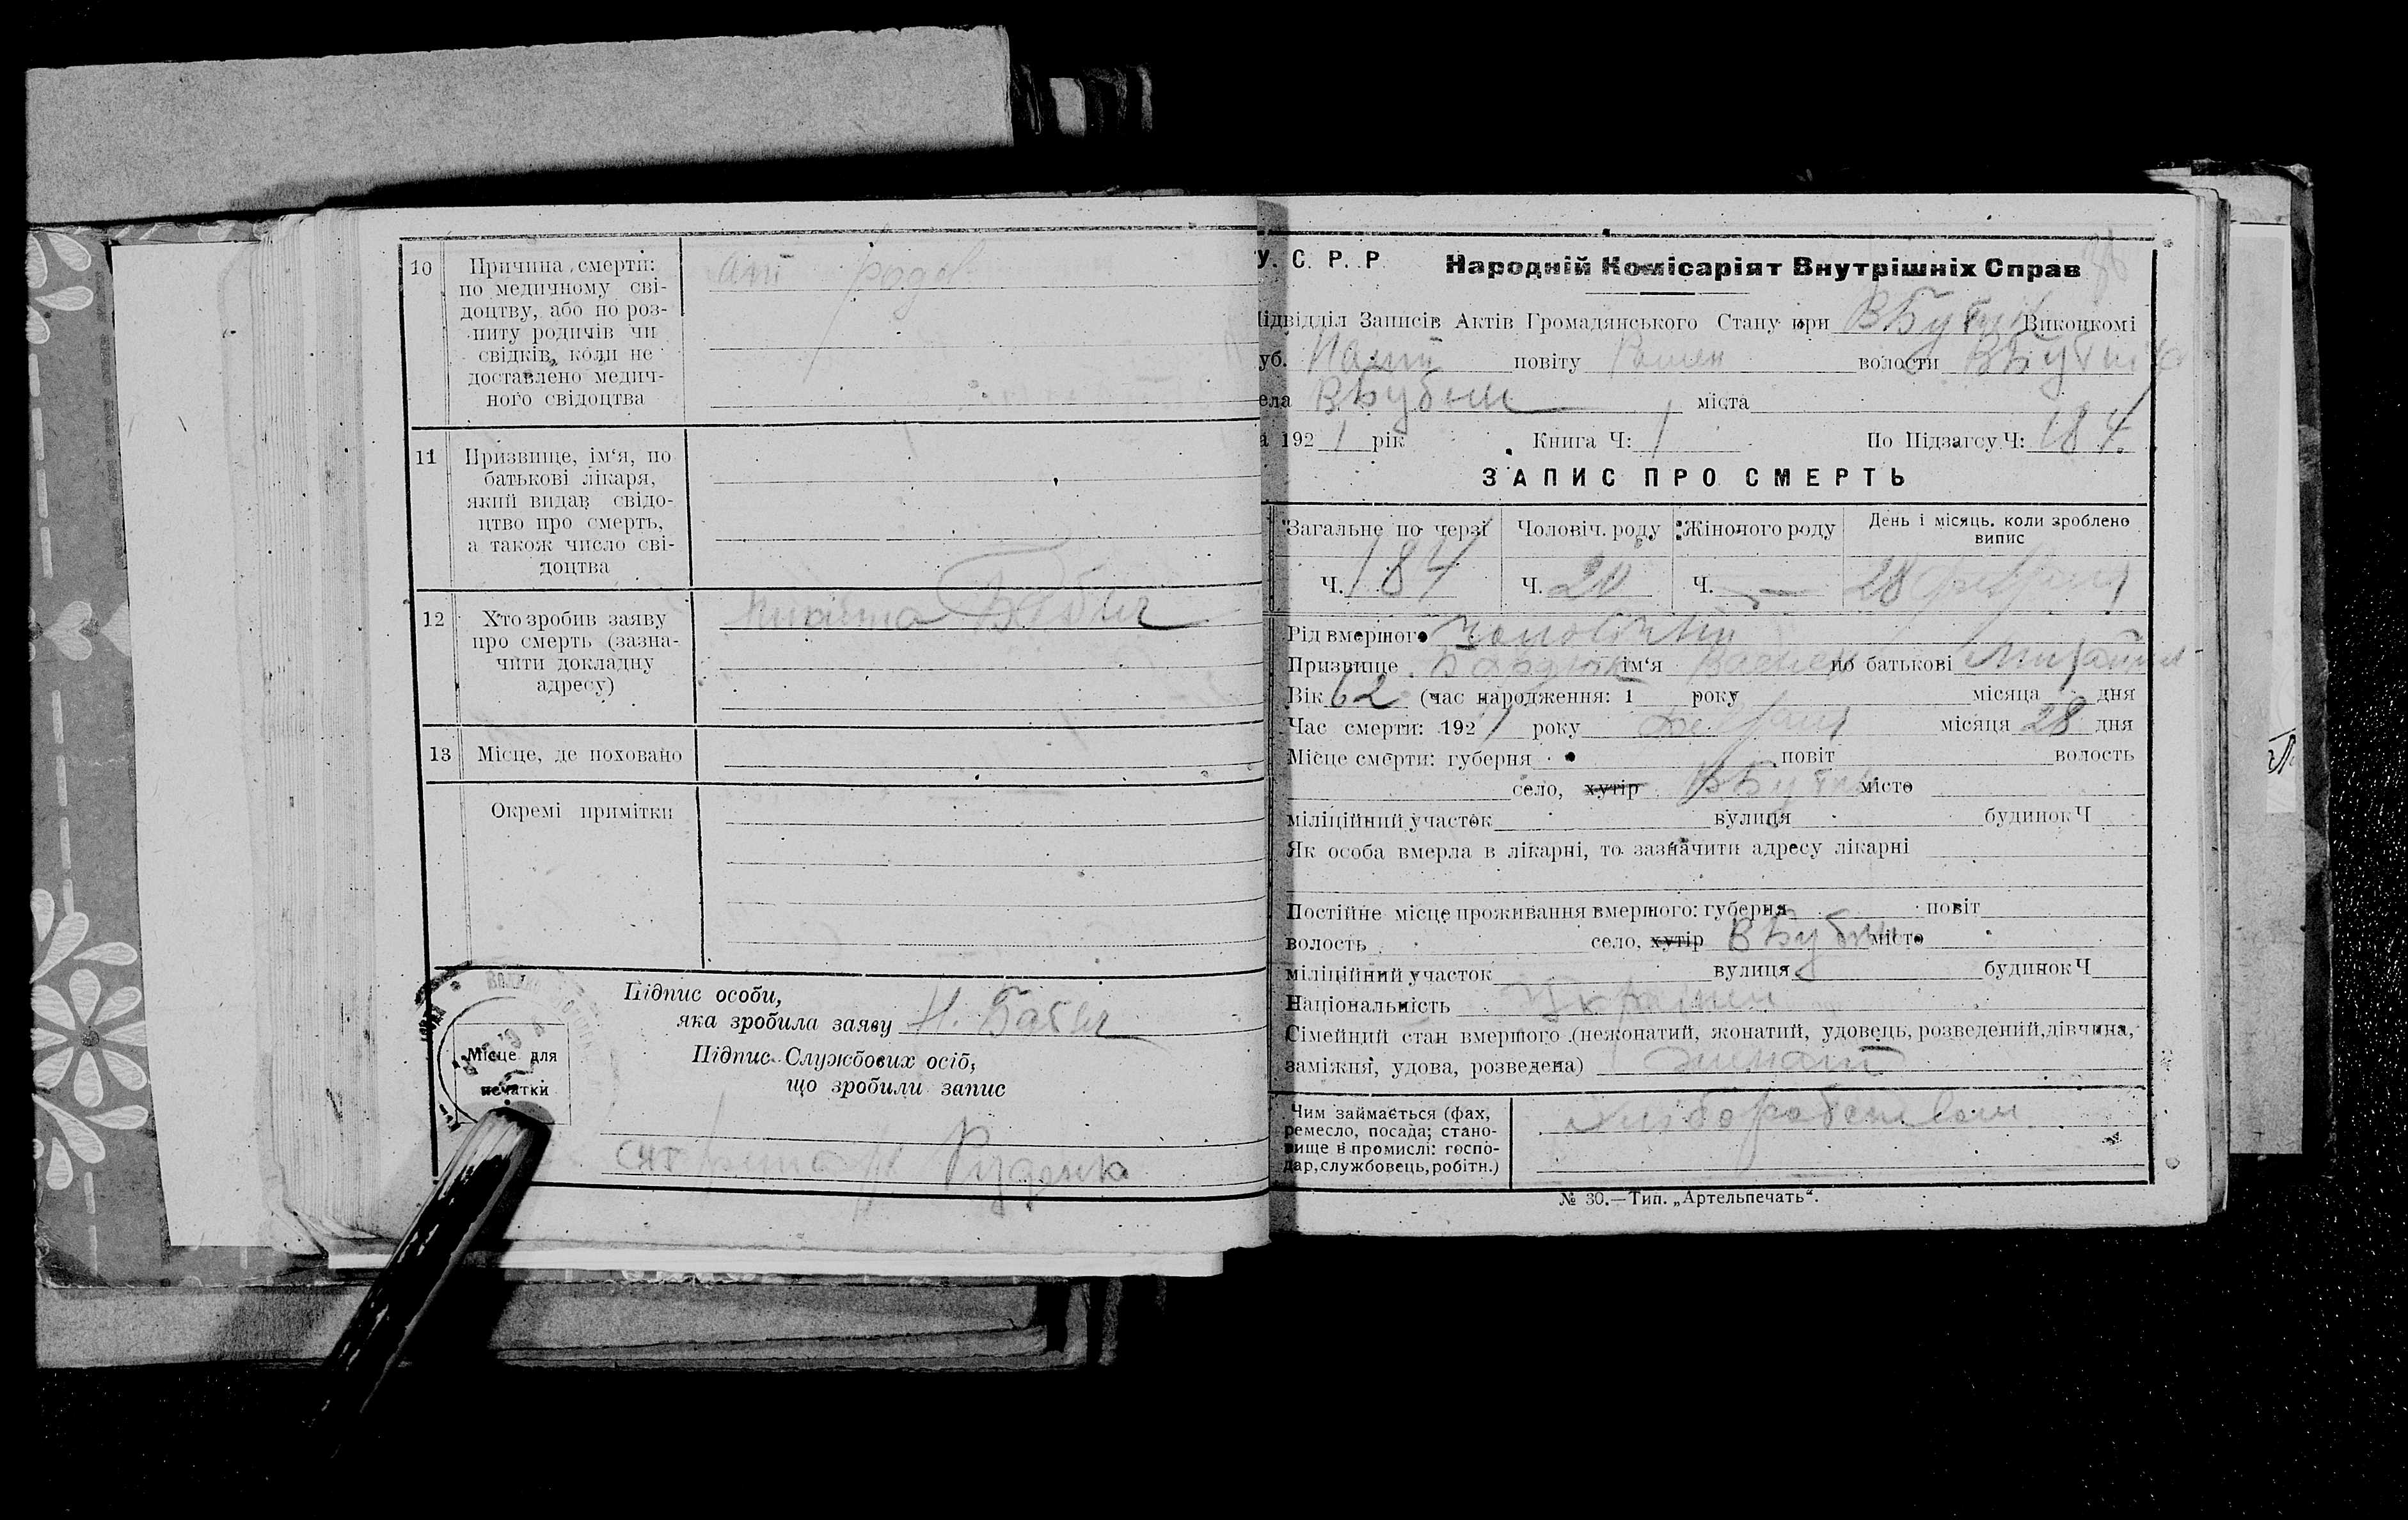 10 Причина смерти:
по медичному сві-
доцтву, або по роз-
питу родичів чи
свідків, коли не
доставлено медич-
ного свідоцтва
11 Призвище, ім‘я, по
батькові лікаря,
який видав свідо-
цтво про смерть,
а також число сві-
доцтва
12 Хто зробив заяву
про смерть (зазна-
чити докладну
адресу)
13 Місце, де поховано
Окремі примітки
Підпис особи,
яка зробила заяву
Підпис Службових осіб,
що зробили запис
Місце для
печатки
Руденко
У. С. Р. Р. Народній Комісаріят Внутрішніх Справ
ідвідділ Записів Актів Громадянського Стану при Виконкомі
уб. повіту Ромен волости
ела ВБубни міста
а 1921 рік Книга Ч: 1 По Підзагсу Ч: 184.
ЗАПИС ПРО СМЕРТЬ
Загальне по черзі Чоловіч. роду Жіночого роду День і місяць. коли зроблено
випис
Ч. 184 Ч. 20 Ч. — 28 февраля
Рід вмершого
Призвище ім‘я по батькові
Вік 62 (час народження: 1 року місяца дня
Час смерти: 1921 року февраля місяця 28 дня
Місце смерти: губерня повіт волость
село, хутір ВБубни місто
міліційний участок вулиця будинок Ч
Як особа вмерла в лікарні, то зазначити адресу лікарні
Постійне місце проживання вмершого: губерня повіт
волость село, хутір ВБубни місто
міліційний участок вулиця будинок Ч
Національність
Сімейний стан вмершого (нежонатий, жонатий, удовець, розведений, дівчина,
заміжня, удова, розведена)
Чим займається (фах,
ремесло, посада; стано-
вище в промислі: госпо-
дар, службовець, робітн.)
№ 30.—Тип. „Артельпечать“.